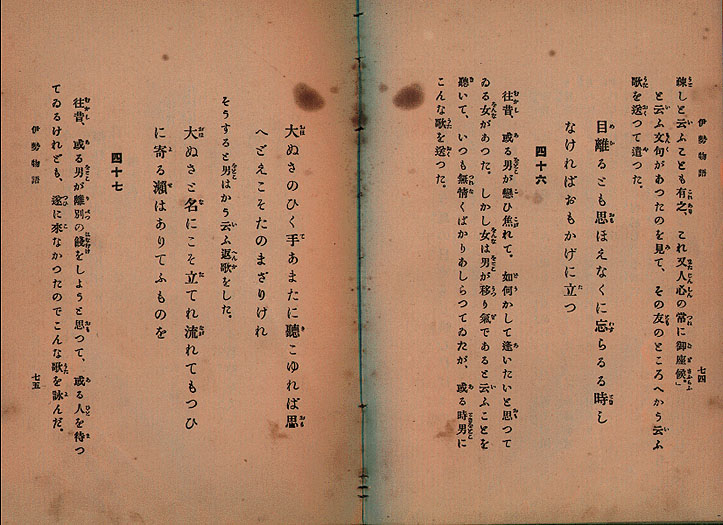 伊勢物語　七四
疎しと云ふことも有之、これ又人心の常に御座候。」
と云ふ文句があつたのを見て、その友のところへかう云ふ
歌を送つて遣つた。
目離るとも思ほえなくに忘らるる時し
なければおもかげに立つ
四十六
往昔、或る男が戀ひ焦れて、如何かして逢いたいと思つて
ゐる女があつた。しかし女は男が移り氣であると云ふことを
聽いて、いつも無情くばかりあしらつてゐたが、或る時男に
こんな歌を送つた。
大ぬさのひく手あまたに聽こゆれば思
へどえこそたのまざりけれ
そうすると男はかう云ふ返歌をした。
大ぬさと名にこそ立てれ流れてもつひ
に寄る瀬はありてふものを
四十七
往昔、或る男が離別の餞をしようと思つて、或る人を待つ
てゐるけれども、遂に來なかつたのでこんな歌を詠んだ。
伊勢物語　七五